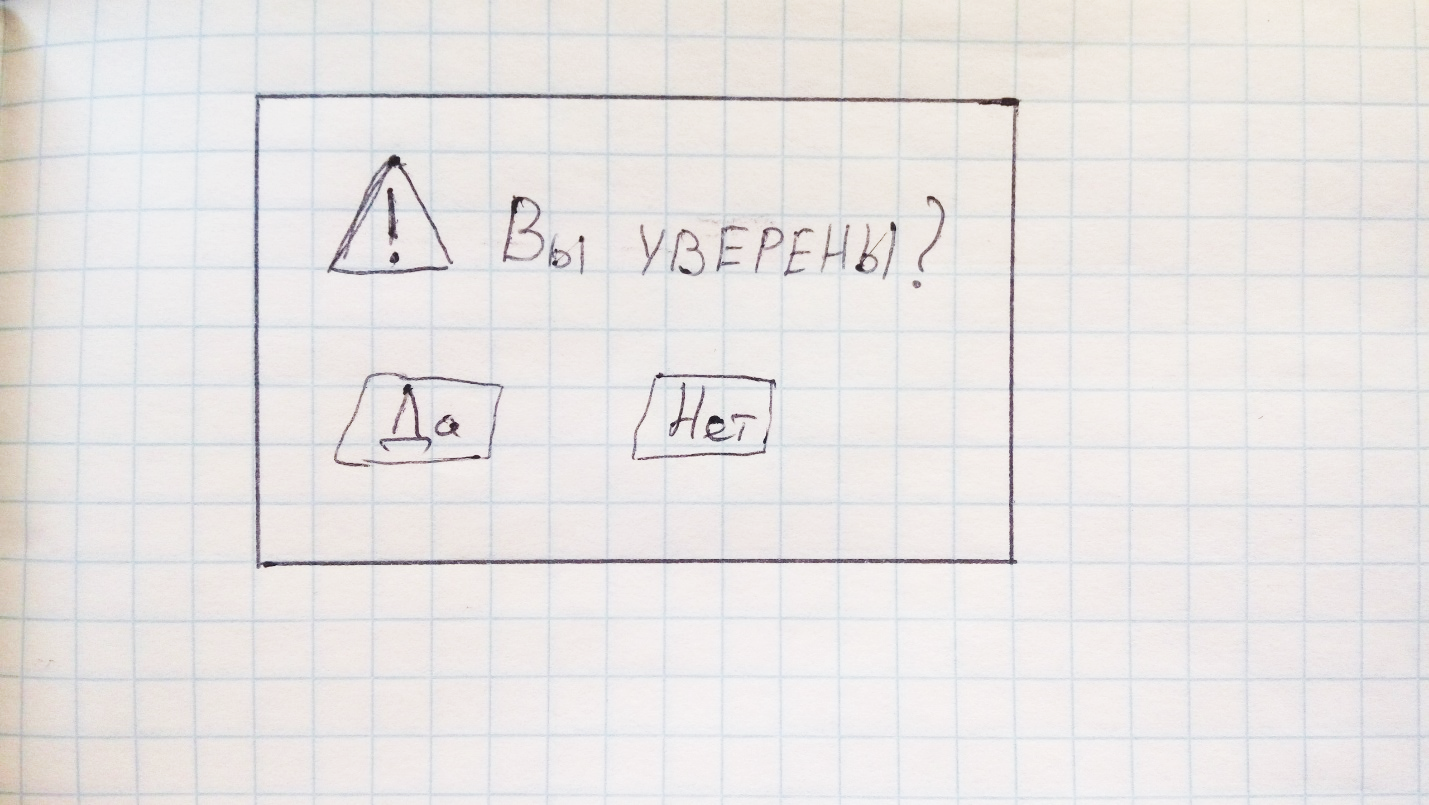 ! Вы УВЕРЕНЫ?
Да Нет